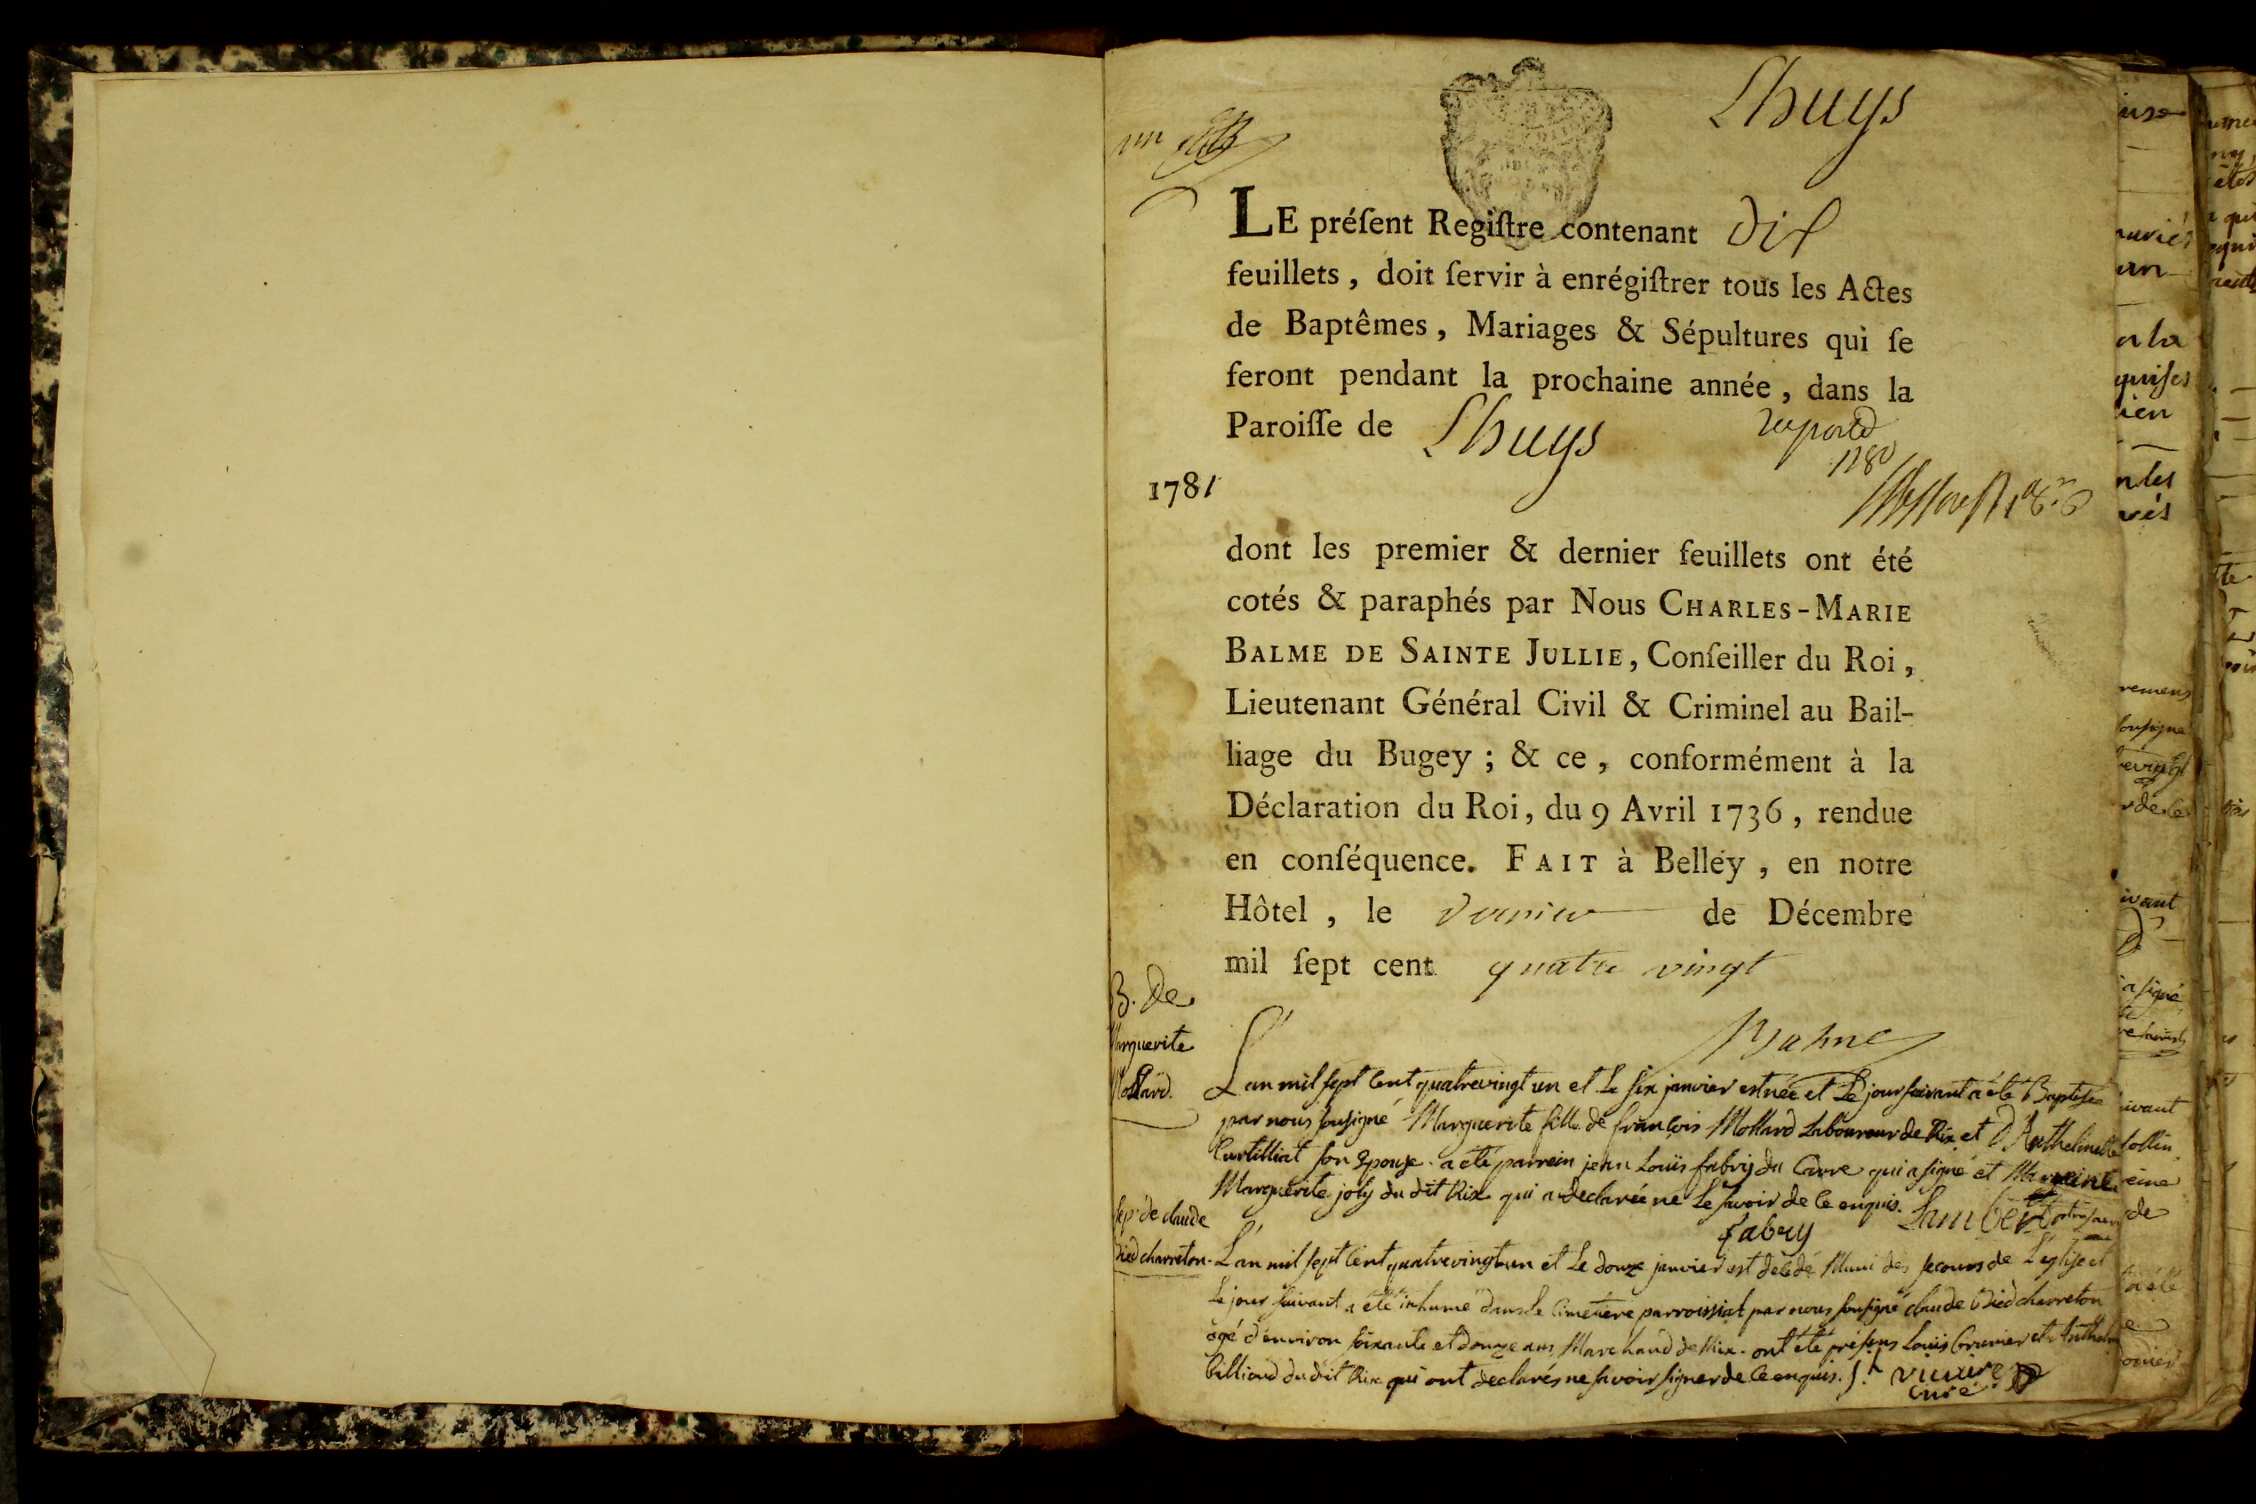 Lhuys
un
LE préſent Regiſtre contenant dix
feuillets, doit ſervir à enrégiſtrer tous les Actes
de Baptêmes, Mariages & Sépultures qui ſe
feront pendant la prochaine année, dans la
Paroiſſe de Lhuys
1780
1781
dont les premier & dernier feuillets ont été
cotés & paraphés par Nous CHARLES-MARIE
BALME DE SAINTE JULLIE, Conſeiller du Roi,
Lieutenant Général Civil & Criminel au Bail-
liage du Bugey ; & ce, conformément à la
Déclaration du Roi, du 9 Avril 1736, rendue
en conſéquence. FAIT à Belley, en notre
Hôtel, le dernier de Décembre
mil ſept cent quatre vingt
Balme
B. de
Marguerite
Mollard.
L'an mil sept cent quatrevingt un et le six janvier est née et le jour suivant a été Baptisée
par nous soussigné Marguerite fille de françois Mollard Laboureur de Rix et D'Anthelmette
Curtilliat son Epouse. a été parrein jean Louis fabry du Carre qui a signé et Marreine
Marguerite joly du dit Rix qui a declarée ne le savoir de ce enquis. Lambert
fabry
sep.e de claude
Died charreton.
L'an mil sept cent quatrevingt un et le douze janvier est décédé Muni des secours de L'eglise et
le jour suivant a été inhumé dans le cimetière parroissial par nous soussigné claude Died charreton
agé d'environ soixante et douze ans Marchand de Rix. ont été présens Louis Crunier et Anthelme
Billiond du dit Rix qui ont declarés ne savoir signer de ce enquis.
curé